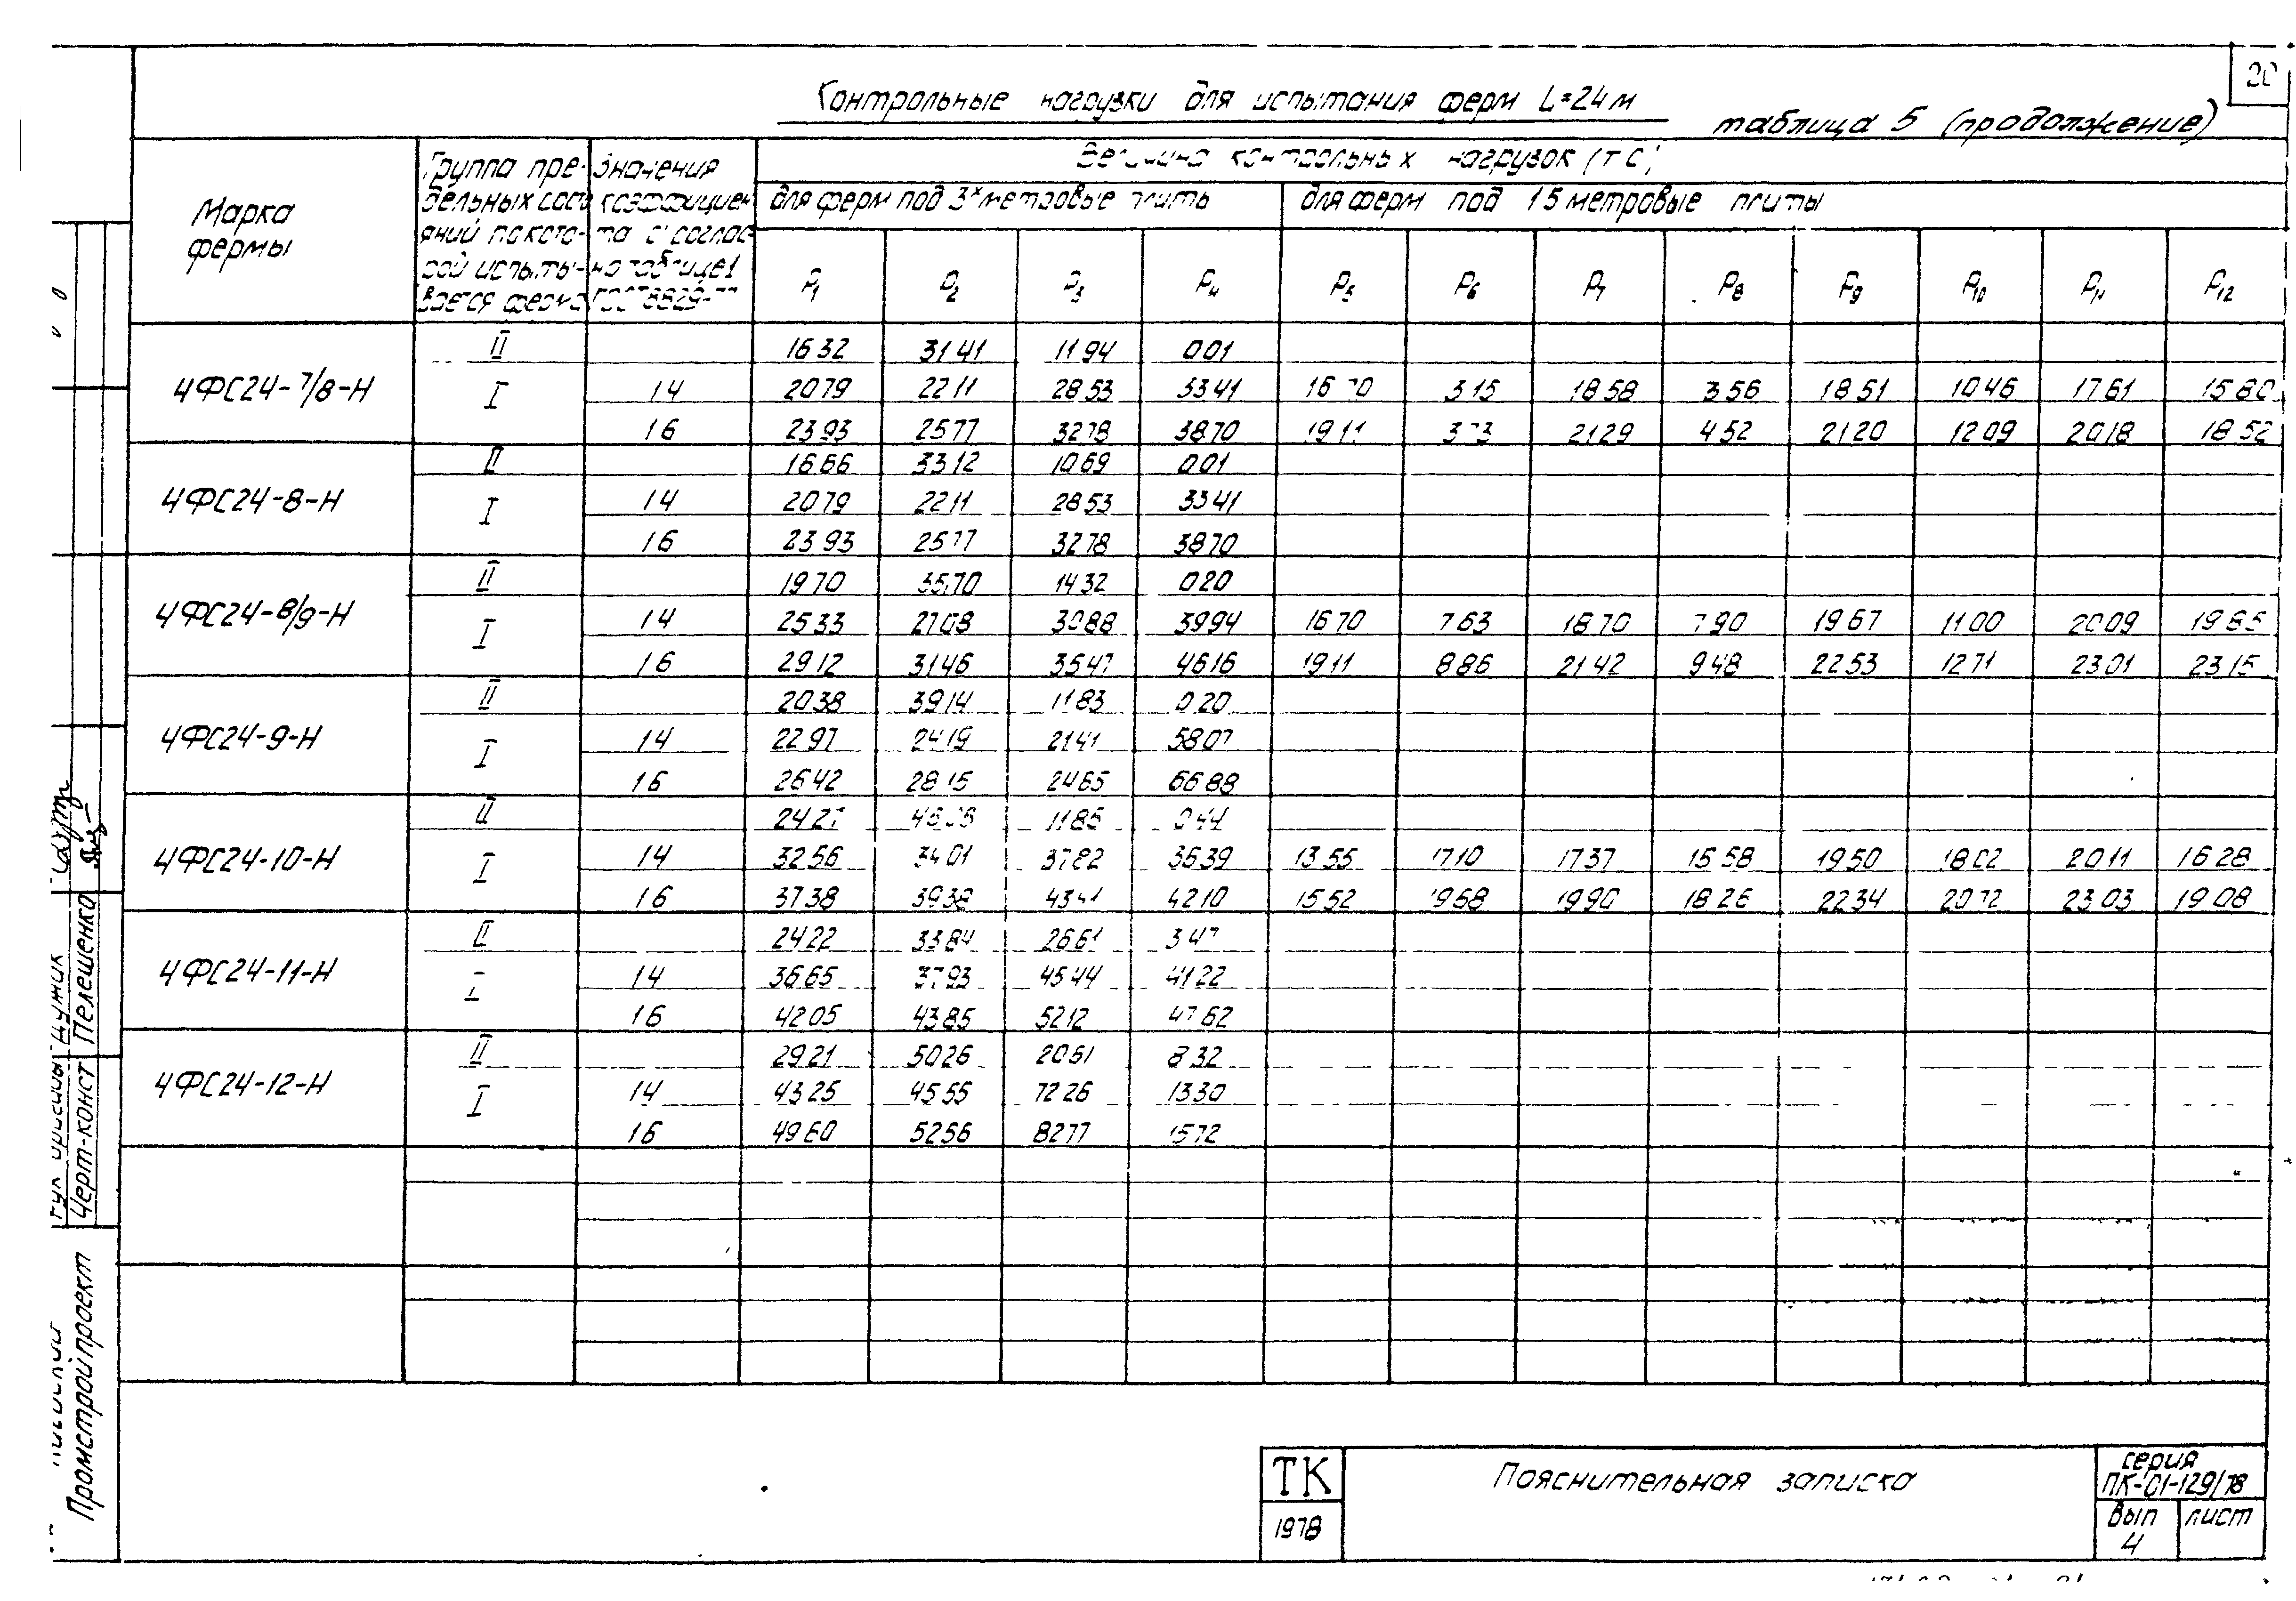 Контрольные нагрузки для испытания ферм L=24м
таблица 5 (продолжение)
Марка фермы
Группа предельных состояний по которой испытывается ферма
Значения коэффициента с согласно таблице 1 ГОСТ 8829-77
Величина контрольных нагрузок (тс)
для ферм под 3х метровые плиты
для ферм под 1 5 метровые плиты
P1 P2 P3 P4 P5 P6 P7 P8 P9 P10 P11 P12
4ФС24-7/8-Н
II 16 32 31 41 11 94 0 01
I 1 4 20 79 22 11 28 53 33 41 3 15 18 58 3 56 18 51 10 46 17 61 15 80
1 6 23 93 25 77 32 78 38 70 19 11 21 29 4 52 21 20 12 09 20 18 18 52
4ФС24-8-Н
II 16 66 33 12 10 69 0 01
I 1 4 20 79 22 11 28 53 33 41
1 6 23 93 25 77 32 78 38 70
4ФС24-8/9-Н
II 19 70 35,70 14 32 0 20
I 1 4 25 33 27 08 30 88 39 94 16 70 7 63 18 70 7 90 19 67 11 00 20 09 19 85
1 6 29 12 31 46 35 47 46 16 19 11 8 86 21 42 9 48 22 53 12 71 23 01 23 15
4ФС24-9-Н
II 20 38 39 14 11 83 0 20
I 1 4 22 97 24 19 21 41 58 07
1 6 26 42 28 15 24 65 66 88
4ФС24-10-Н
II 24 27 11 85 0 44
I 1 4 32 56 34 01 37 82 36 39 13 55 17 10 17 37 15 58 19 50 18 02 20 11 16 28
1 6 37 38 39 38 42 10 15 52 19 68 19 90 18 26 22 34 20 72 23 03 19 08
4ФС24-11-Н
II 24 22 33 84 26 61 3 47
I 1 4 36 65 37 93 45 44 41 22
1 6 42 05 43 85 52 12 47 62
4ФС24-12-Н
II 29 21 50 26 20 61 8 32
I 1 4 43 25 45 55 72 26 13 30
1 6 49 60 52 56 82 77 15 72
Промстройпроект
Черт-конст Пелешенко
ТК
1978
Пояснительная записка
серия
ПК-01-129/78
Вып
4
лист